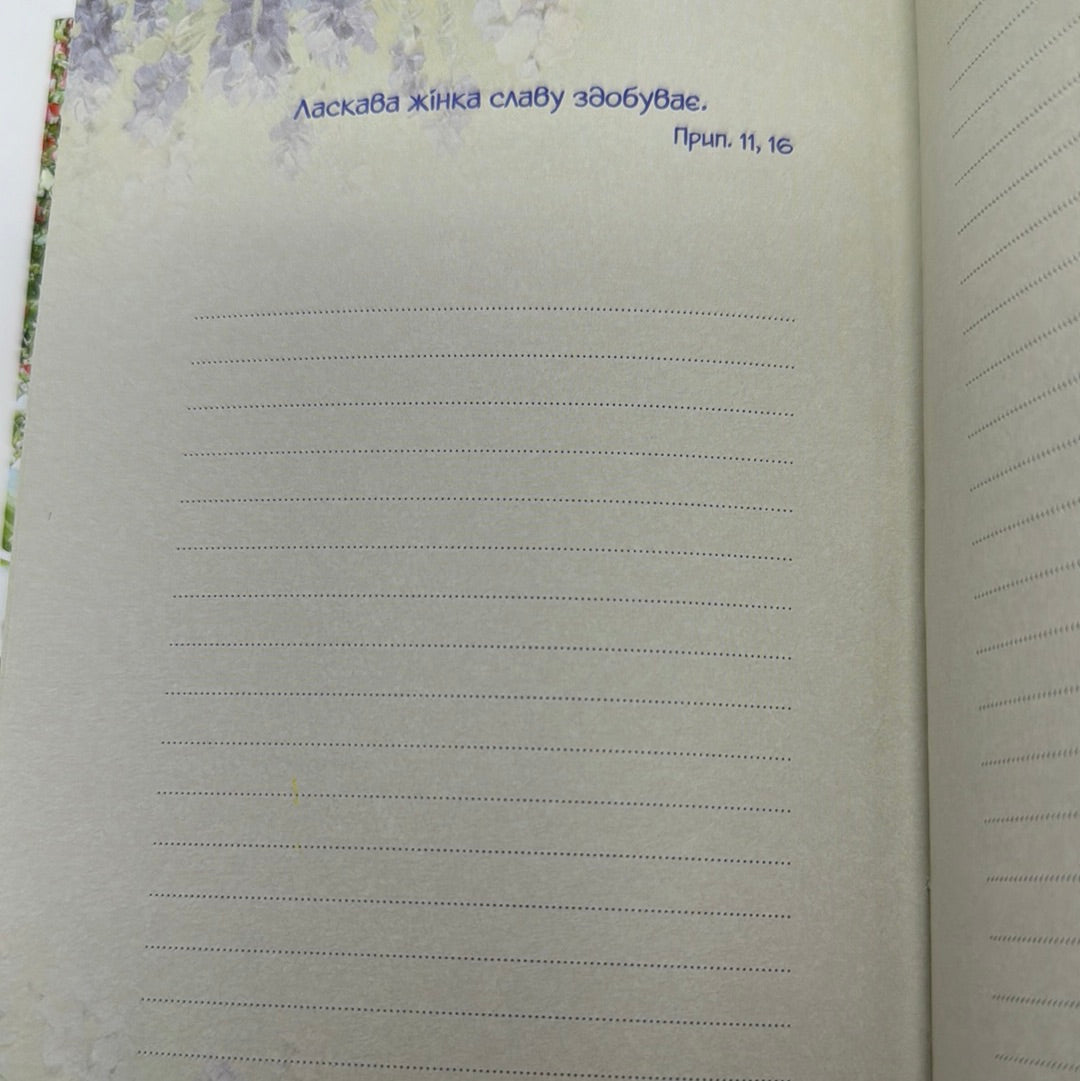 Ласкава жінка славу здобуває.
Прип. 11, 16